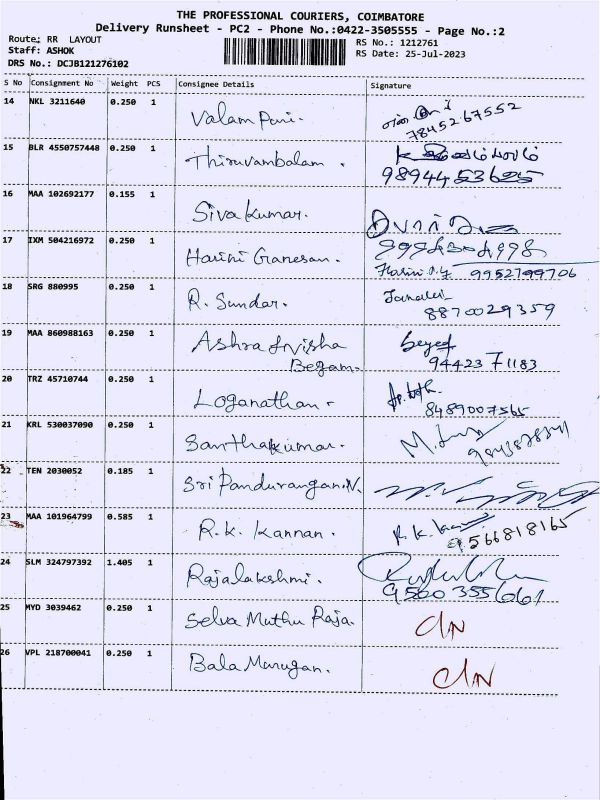 THE PROFESSIONAL COURIERS, COIMBATORE
Delivery Runsheet - PC2 - Phone No.:0422-3505555 - Page No.:2
Route: RR LAYOUT
RS No.: 1212761
Staff: ASHOK
RS Date: 25-Jul-2023
DRS No.: DCJB121276102
S No Consignment No Weight PCS Consignee Details Signature
14 NKL 3211640 0.250 1 Valam Puri. 7845267552
15 BLR 4550757448 0.250 1 Thiruvambalam. 9894453625
16 MAA 102692177 0.155 1 Sivakumar.
17 IXM 504216972 0.250 1 Harini Ganesan. 9952799706
18 SRG 880995 0.250 1 R. Sundar. 8870029359
19 MAA 860988163 0.250 1 Ashra Begam. 9442371183
20 TRZ 45710744 0.250 1 Loganathan. 8489007565
21 KRL 530037090 0.250 1 Santhakumar.
22 TEN 2030052 0.185 1 Sri Pandurangan.N.
23 MAA 101964799 0.585 1 R.K. Kannan. 9566818165
24 SLM 324797392 1.405 1 Rajalakshmi.
25 MYD 3039462 0.250 1 Selva Muthu Raja.
26 VPL 218700041 0.250 1 Bala Murugan.